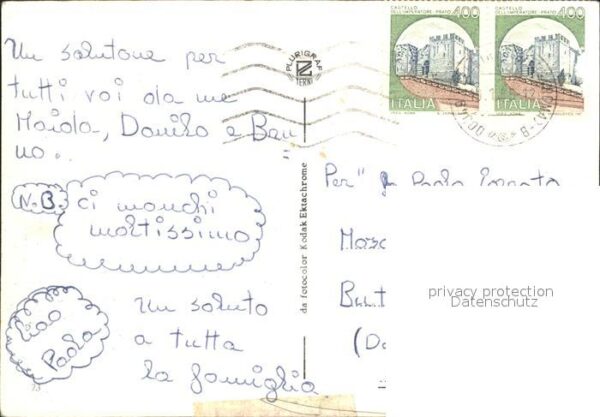 Un salutone per
tutti voi da me
Maida, Danilo e Bru
no.
N.B. ci manchi
moltissimo
Ciao
Paola
Un saluto
a tutta
la famiglia
PLURIGRAF
TERNI
da fotocolor Kodak Ektachrome
CASTELLO
DELL'IMPERATORE · PRATO
400
ITALIA
CASTELLO
DELL'IMPERATORE · PRATO
400
ITALIA
Per
Paola
privacy protection
Datenschutz